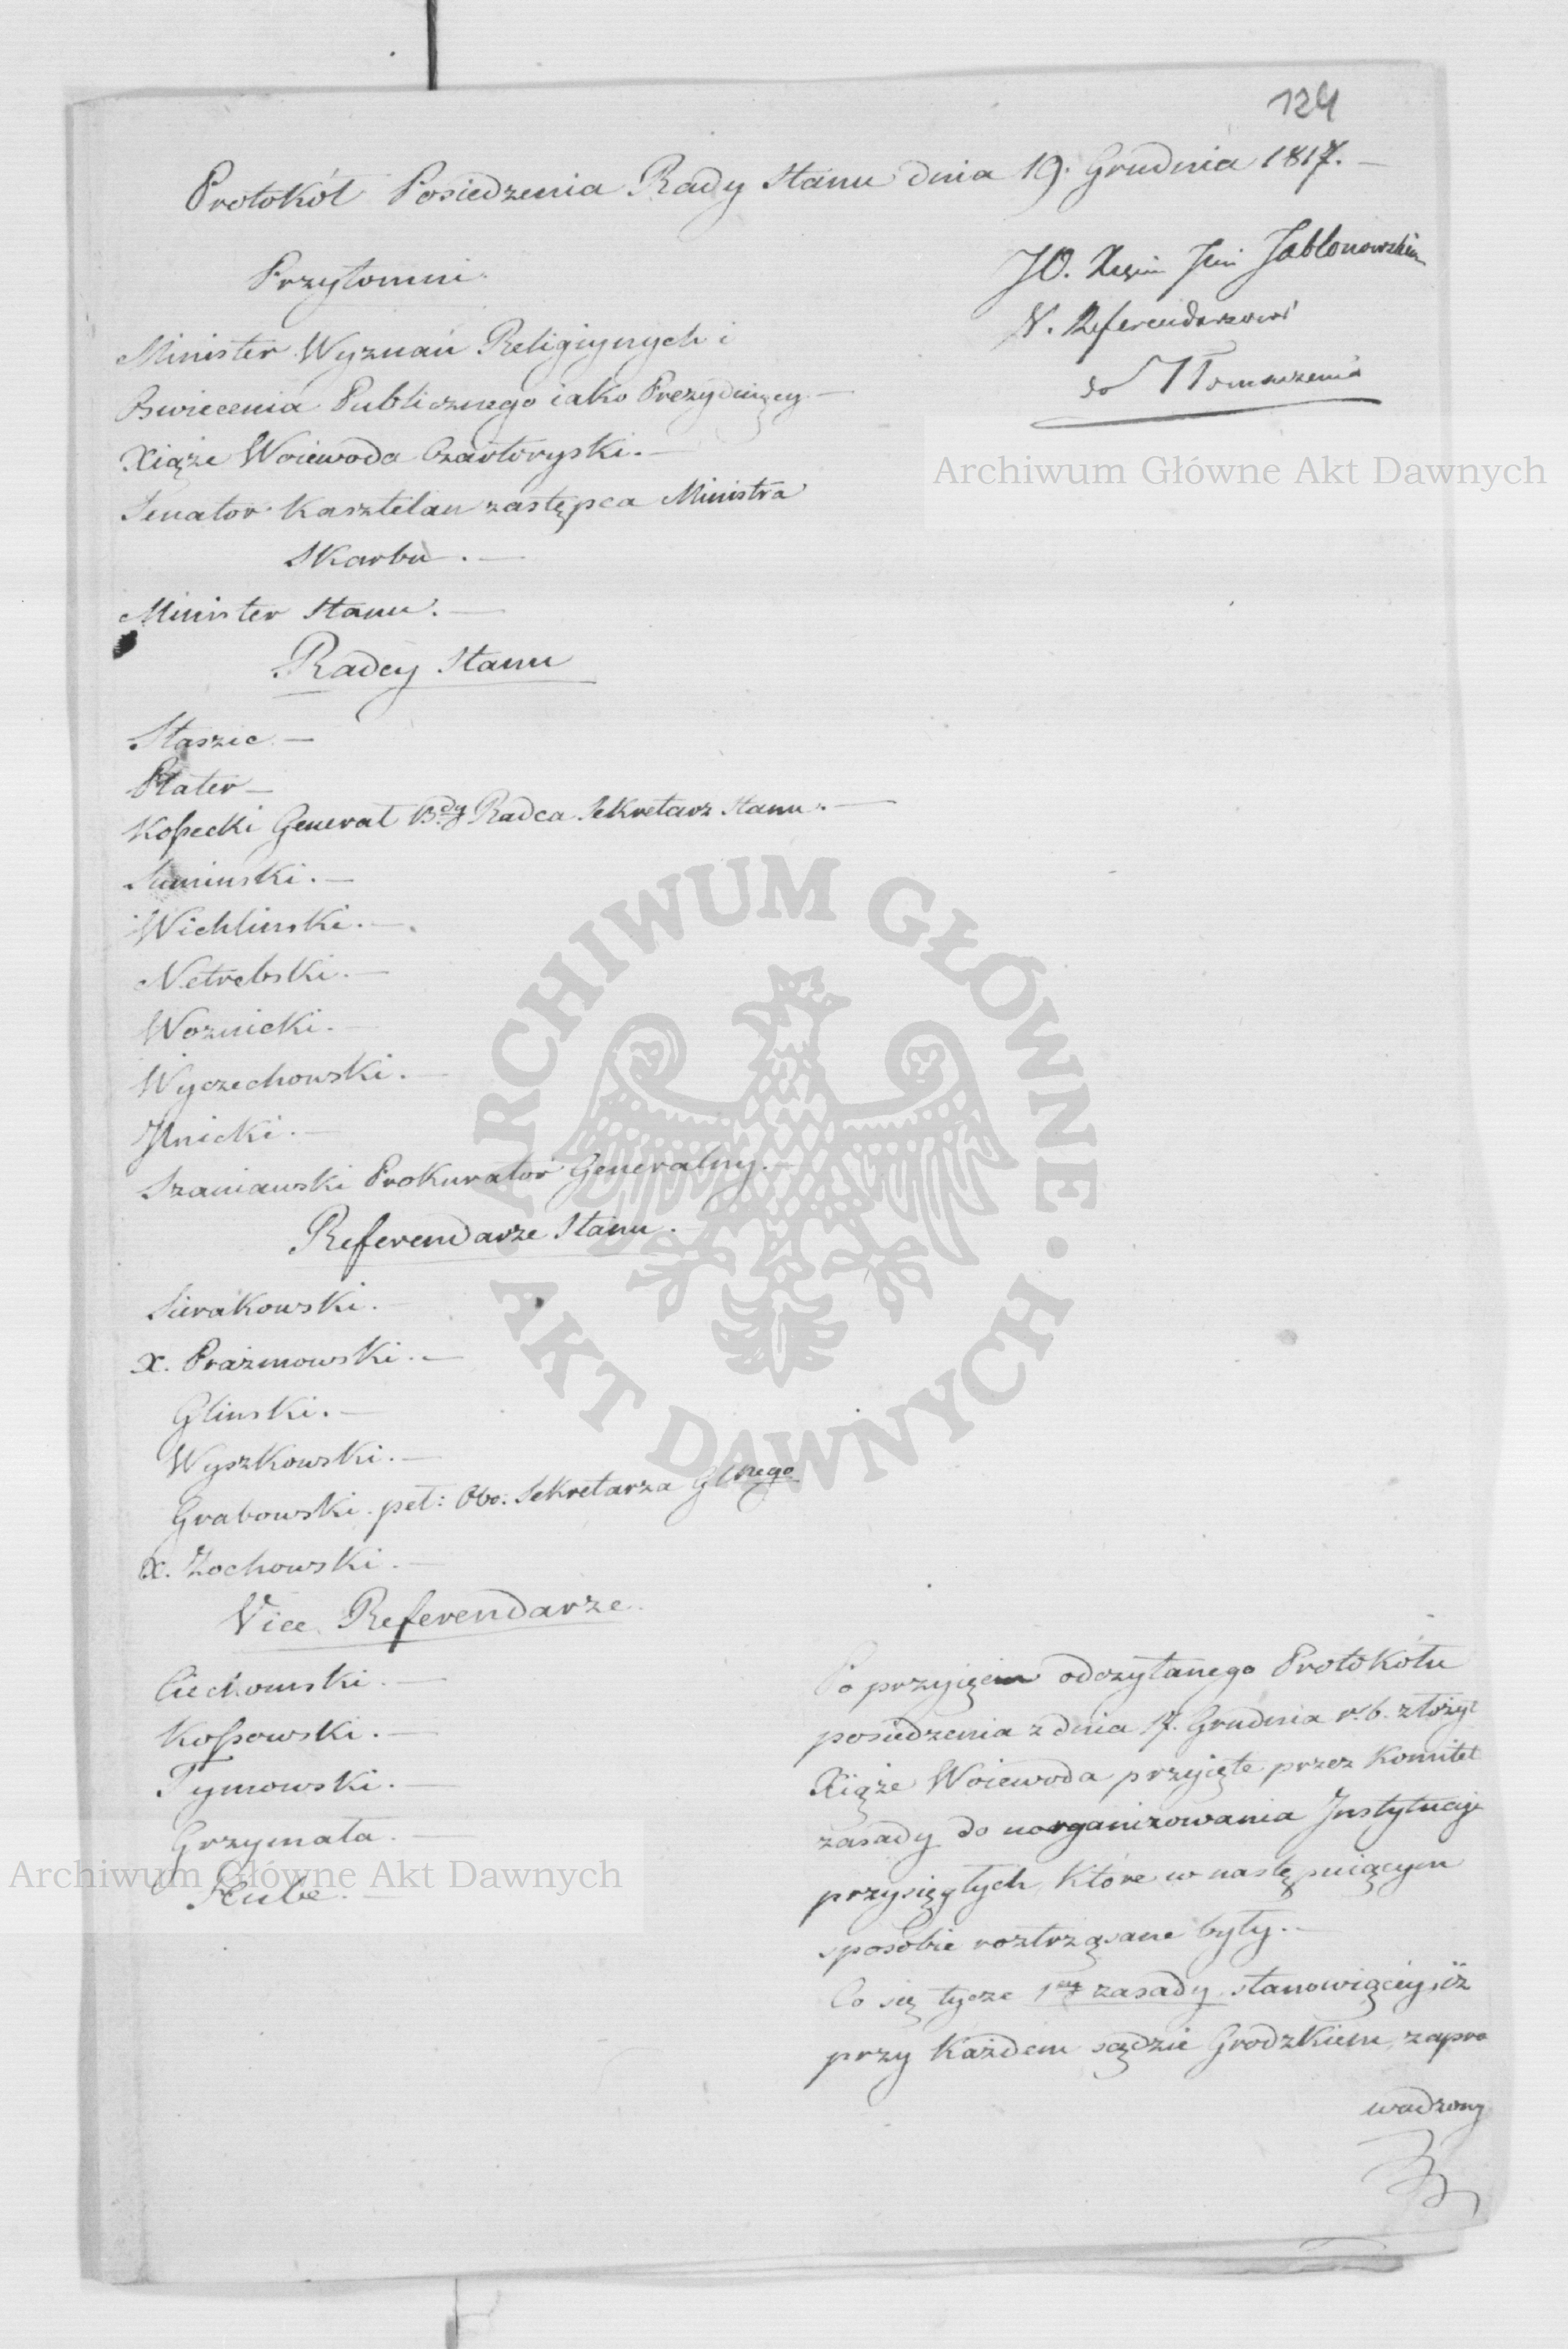 124
Protokół Posiedzenia Rady Stanu dnia 19. Grudnia 1817. —
JO. Xięciu Jmci Jabłonowskiemu
V. Referendarzowi
do Tłomaczenia
Przytomni.
Minister Wyznań Religiynych i
Oswiecenia Publicznego iako Prezyduiący —
Xiąże Woiewoda Czartoryski. —
Senator Kasztelan zastępca Ministra
Skarbu. —
Minister Stanu. —
Radcy Stanu
Staszic —
Plater —
Koſsecki Generał Bdy Radca Sekretarz Stanu. —
Suminski. —
Wichlinski. —
Netrebski. —
Woznicki. —
Wyczechowski. —
Jnicki. —
Szaniawski Prokurator Generalny. —
Referendarze Stanu.
Sierakowski. —
X. Prażmowski. —
Glinski. —
Wyszkowski. —
Grabowski peł: Obo: Sekretarza Glnego
X. Zochowski. —
Vice Referendarze.
Ciechomski. —
Koſsowski. —
Tymowski. —
Grzymała. —
Hube. —
Po przyięciu odczytanego Protokółu
posiedzenia z dnia 17. Grudnia r. b. złożył
Xiąże Woiewoda przyięte przez Komitet
zasady do uorganizowania Jnstytucyi
przysięgłych, które w następuiącym
sposobie roztrząsane były. —
Co się tycze 1ey zasady stanowiącey, iż
przy każdem sądzie Grodzkiem, zapro
wadzony
Archiwum Główne Akt Dawnych
ARCHIWUM GŁÓWNE · AKT DAWNYCH ·
Archiwum Główne Akt Dawnych